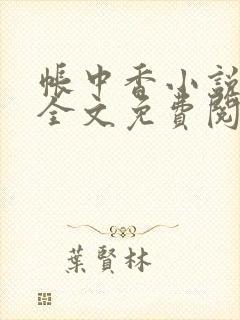 帳中香小說
全文免費閱
葉賢林